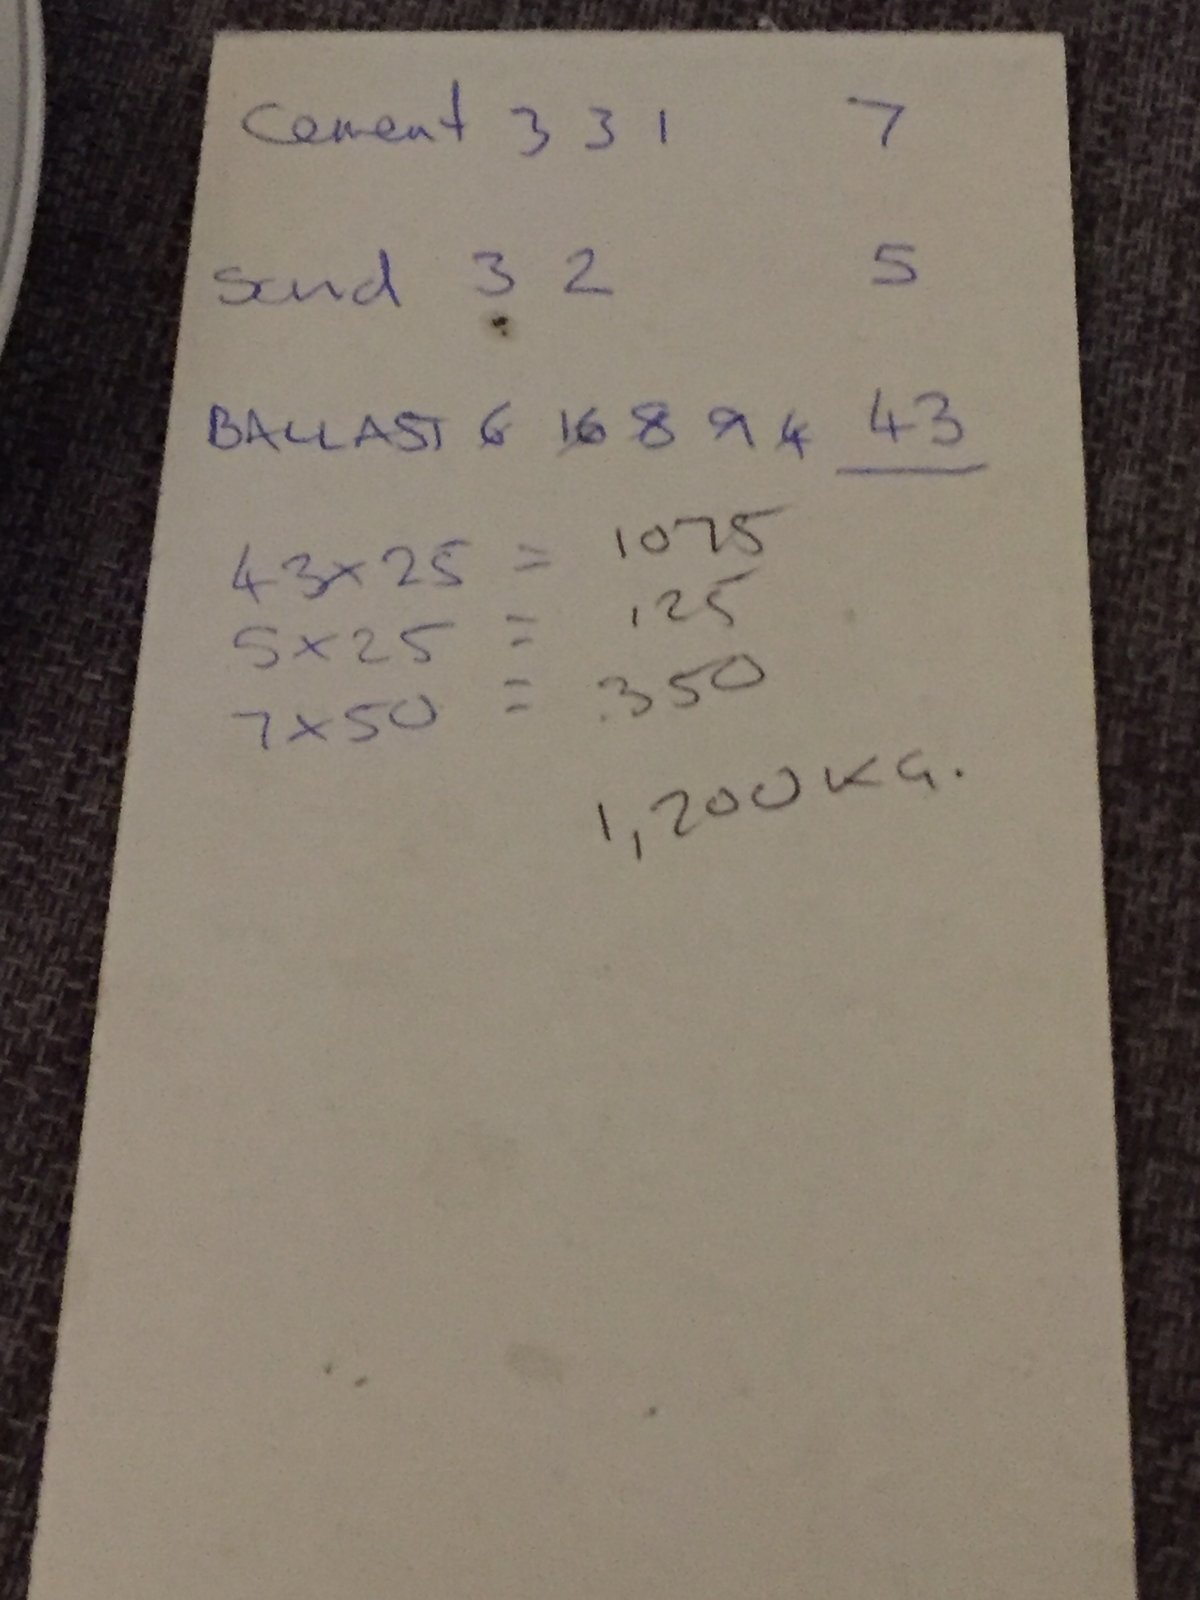 Cement 3 3 1 7
Sand 3 2 5
BALLAST 6 16 8 9 4 43
43x25 = 1075
5x25 = 125
7x50 = 350
1,200 KG.